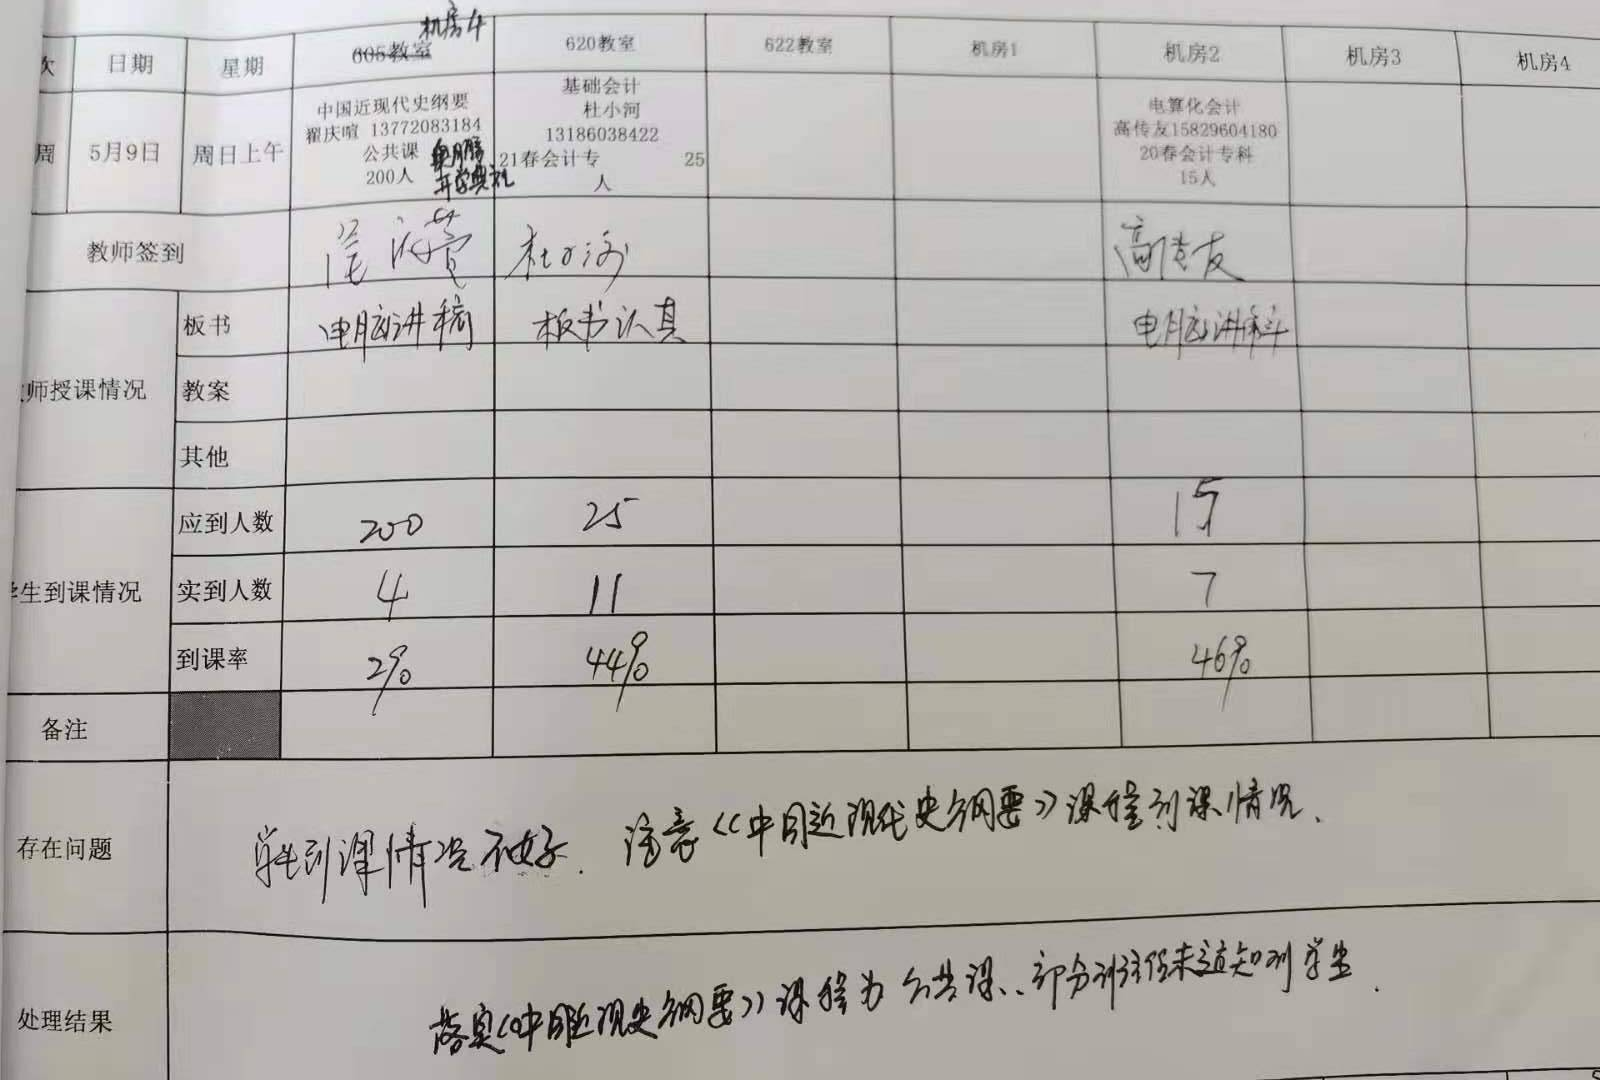 机房4
次 日期 星期 605教室 620教室 622教室 机房1 机房2 机房3 机房4
周 5月9日 周日上午
中国近现代史纲要
翟庆喧 13772083184
公共课
200人
开学典礼
基础会计
杜小河
13186038422
21春会计专 25
人
电算化会计
高传友15829604180
20春会计专科
15人
教师签到 杜小河 高传友
师授课情况
板书 电脑讲稿 板书认真 电脑讲稿
教案
其他
学生到课情况
应到人数 200 25 15
实到人数 4 11 7
到课率 2% 44% 46%
备注
存在问题 学生到课情况不好. 注意《中国近现代史纲要》课程到课情况.
处理结果 落实《中国近现史纲要》课程为公共课、部分班主任未通知到学生.